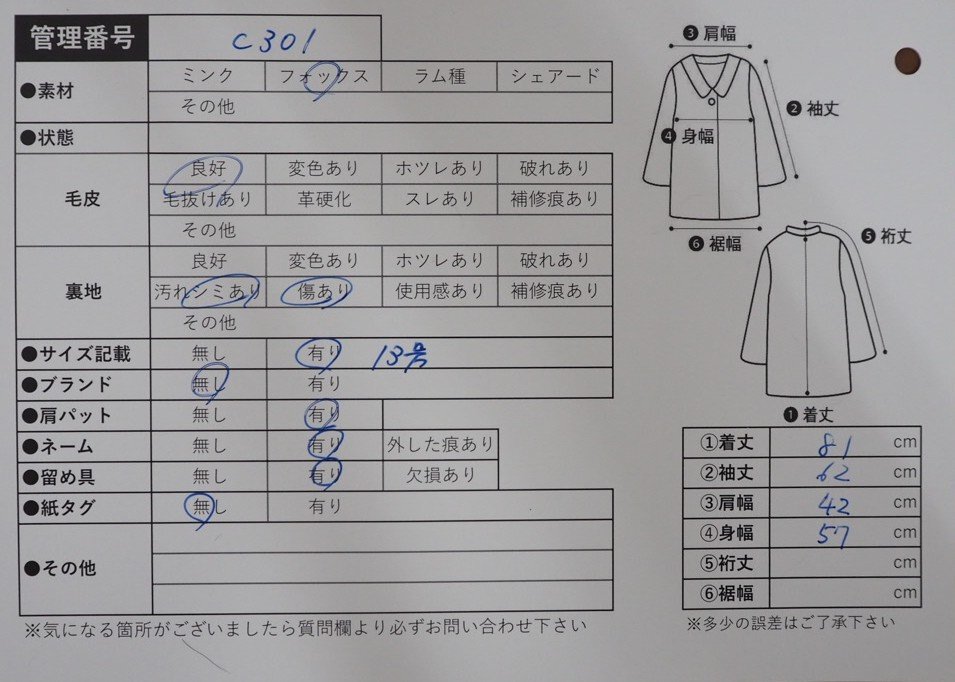 管理番号 C301
●素材 ミンク フォックス ラム種 シェアード
その他
●状態
毛皮 良好 変色あり ホツレあり 破れあり
毛抜けあり 革硬化 スレあり 補修痕あり
その他
裏地 良好 変色あり ホツレあり 破れあり
汚れシミあり 傷あり 使用感あり 補修痕あり
その他
●サイズ記載 無し 有り 13号
●ブランド 無し 有り
●肩パット 無し 有り
●ネーム 無し 有り 外した痕あり
●留め具 無し 有り 欠損あり
●紙タグ 無し 有り
●その他
※気になる箇所がございましたら質問欄より必ずお問い合わせ下さい
❸肩幅
❷袖丈
❹身幅
❻裾幅
❺裄丈
❶着丈
①着丈 81 cm
②袖丈 62 cm
③肩幅 42 cm
④身幅 57 cm
⑤裄丈 cm
⑥裾幅 cm
※多少の誤差はご了承下さい